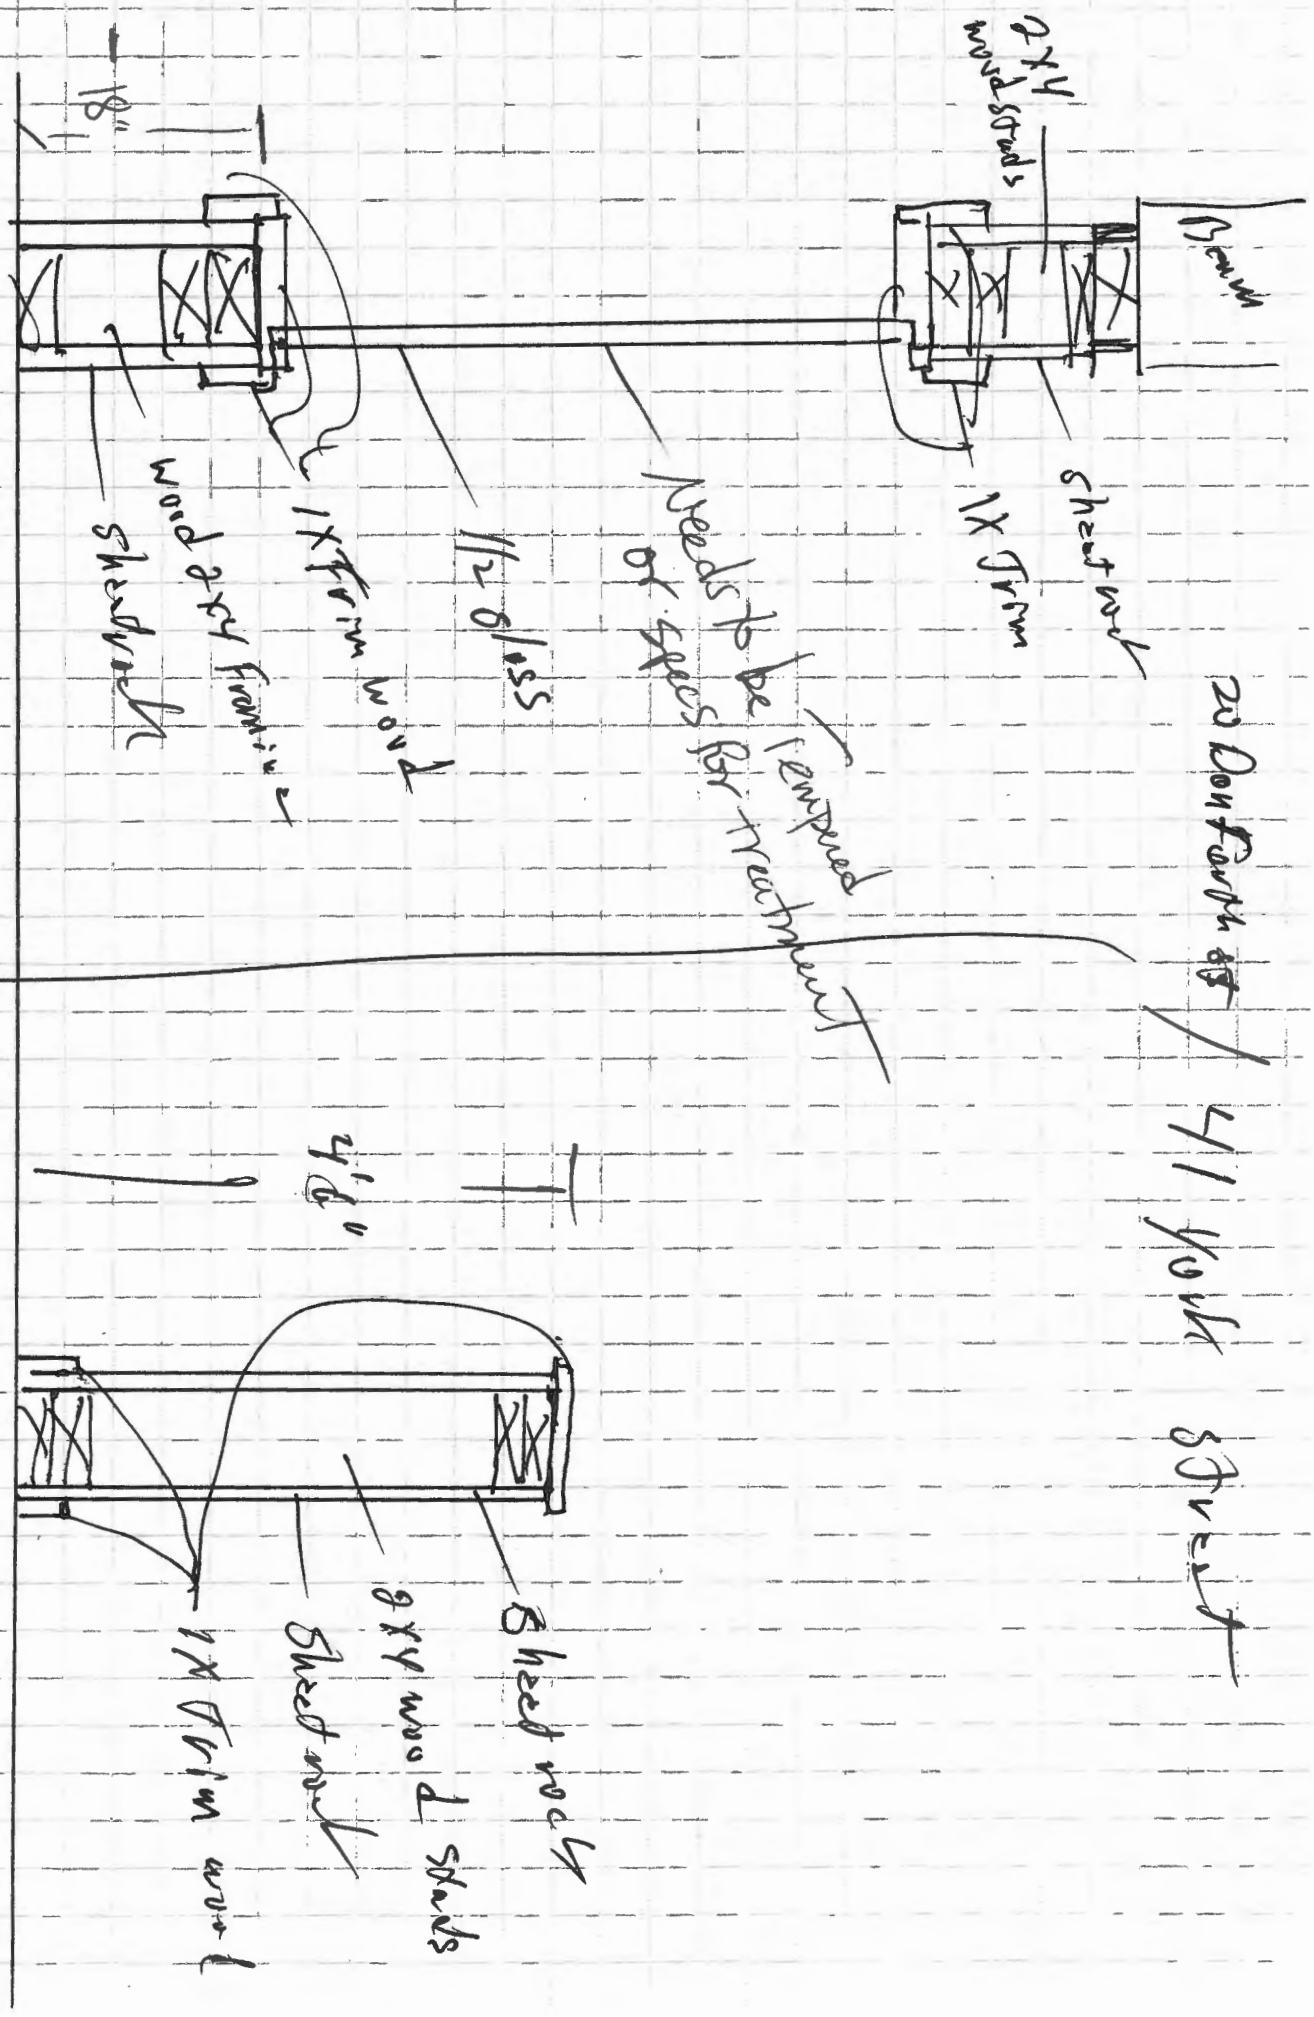 20 Danforth St / 41 York Street
Beam
2x4
wood studs
sheetrock
1X Trim
Needs to be Tempered
or specs for treatment
1/2 Glass
1X Trim wood
wood 2x4 framing
sheetrock
18"
4'6"
Sheetrock
2x4 wood studs
Sheetrock
1X Trim wood